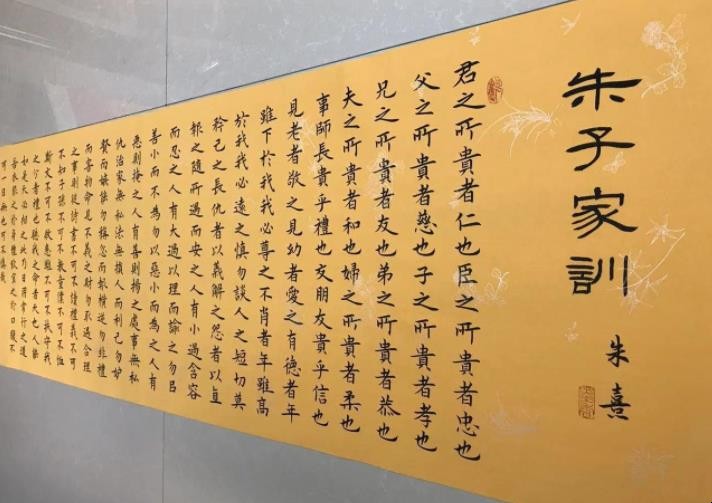 朱子家訓
朱熹
君之所貴者仁也臣之所貴者忠也
父之所貴者慈也子之所貴者孝也
兄之所貴者友也弟之所貴者恭也
夫之所貴者和也婦之所貴者柔也
事師長貴乎禮也交朋友貴乎信也
見老者敬之見幼者愛之有德者年
雖下於我我必尊之不肖者年雖高
於我我必遠之慎勿談人之短切莫
矜己之長仇者以義解之怨者以直
報之隨所遇而安之人有小過含容
而忍之人有大過以理而諭之勿以
善小而不為勿以惡小而為之人有
惡則掩之人有善則揚之處事無私
仇治家無私法無損人而利己勿妒
賢而嫉能勿稱忿而報橫逆勿非禮
而害物命見不義之財勿取遇合理
之事則從詩書不可不讀禮義不可
不知子孫不可不教童僕不可不恤
斯文不可不敬患難不可不扶守我
之分者禮也聽我之命者天也人能
如是天必相之此乃日用常行之道
若衣服之於身體飲食之於口腹不
可一日無也可不慎哉